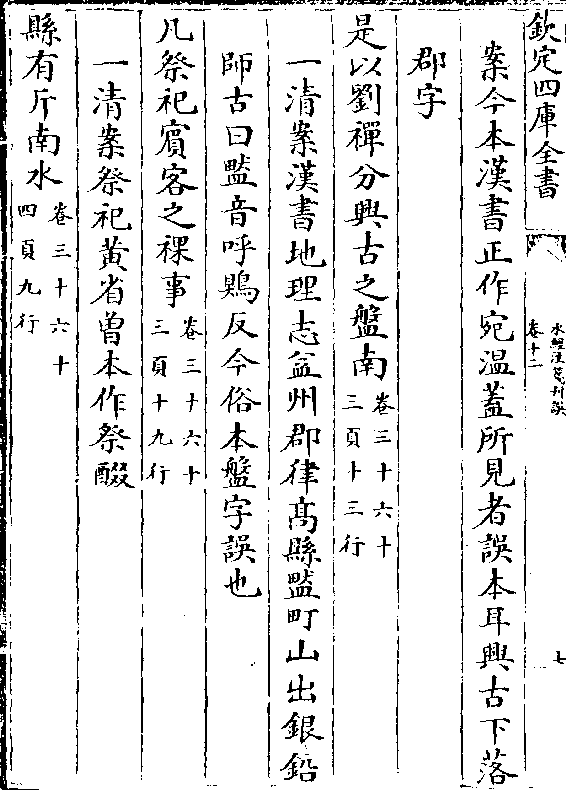 欽定四庫全書
水經注箋刊誤
卷十二
七
案今本漢書正作宛温蓋所見者誤本耳興古下落
郡字
是以劉禪分興古之盤南卷三十六十三頁十三行
一清案漢書地理志益州郡律髙縣盢町山出銀鉛
師古曰盢音呼鶪反今俗本盤字誤也
凡祭祀賓客之祼事卷三十六十三頁十九行
一清案祭祀黄省曽本作祭醊
縣有斤南水卷三十六十四頁九行